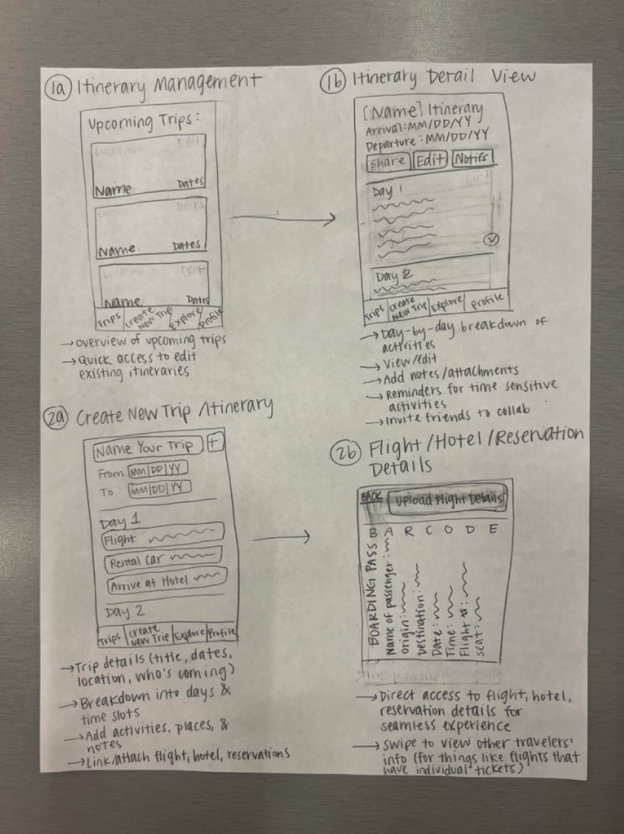 1a Itinerary Management
Upcoming Trips:
Location Edit
Name Dates
Edit
Name Dates
Name Dates
Trips Create New Trip Explore Profile
→ overview of upcoming trips
→ Quick access to edit
existing itineraries
1b Itinerary Detail View
[Name] Itinerary
Arrival: MM/DD/YY
Departure: MM/DD/YY
Share Edit Notifs
Day 1
Day 2
Trips Create New Trip Explore Profile
→ Day-by-day breakdown of
activities
→ View/edit
→ Add notes/attachments
→ Reminders for time sensitive
activities
→ Invite friends to collab
2a Create New Trip/Itinerary
Name Your Trip +
From MM/DD/YY
To MM/DD/YY
Day 1
Flight
Rental Car
Arrive at Hotel
Day 2
Trips Create New Trip Explore Profile
→ Trip details (title, dates,
location, who's coming)
→ Breakdown into days &
time slots
→ Add activities, places, &
notes
→ Link/attach flight, hotel, reservations
2b Flight/Hotel/Reservation
Details
BACK Upload Flight Details
BARCODE
BOARDING PASS
Name of passenger:
Origin:
Destination:
Date:
Time:
Flight #:
Seat:
→ Direct access to flight, hotel,
reservation details for
seamless experience
→ Swipe to view other travelers'
info (for things like flights that
have individual tickets)